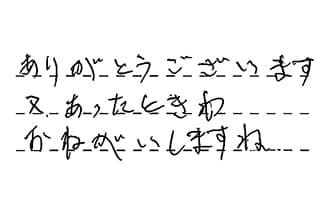 ありがとうございます
又、あったときわ
おねがいしますね…